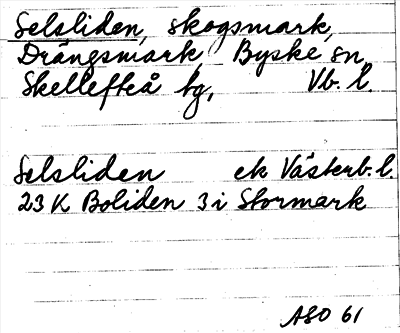 Selsliden, skogsmark,
Drängsmark, Byske sn,
Skellefteå tg, Vb. l.
Selsliden ek Västerb. l.
23 K Boliden 3 i Stormark
ASO 61